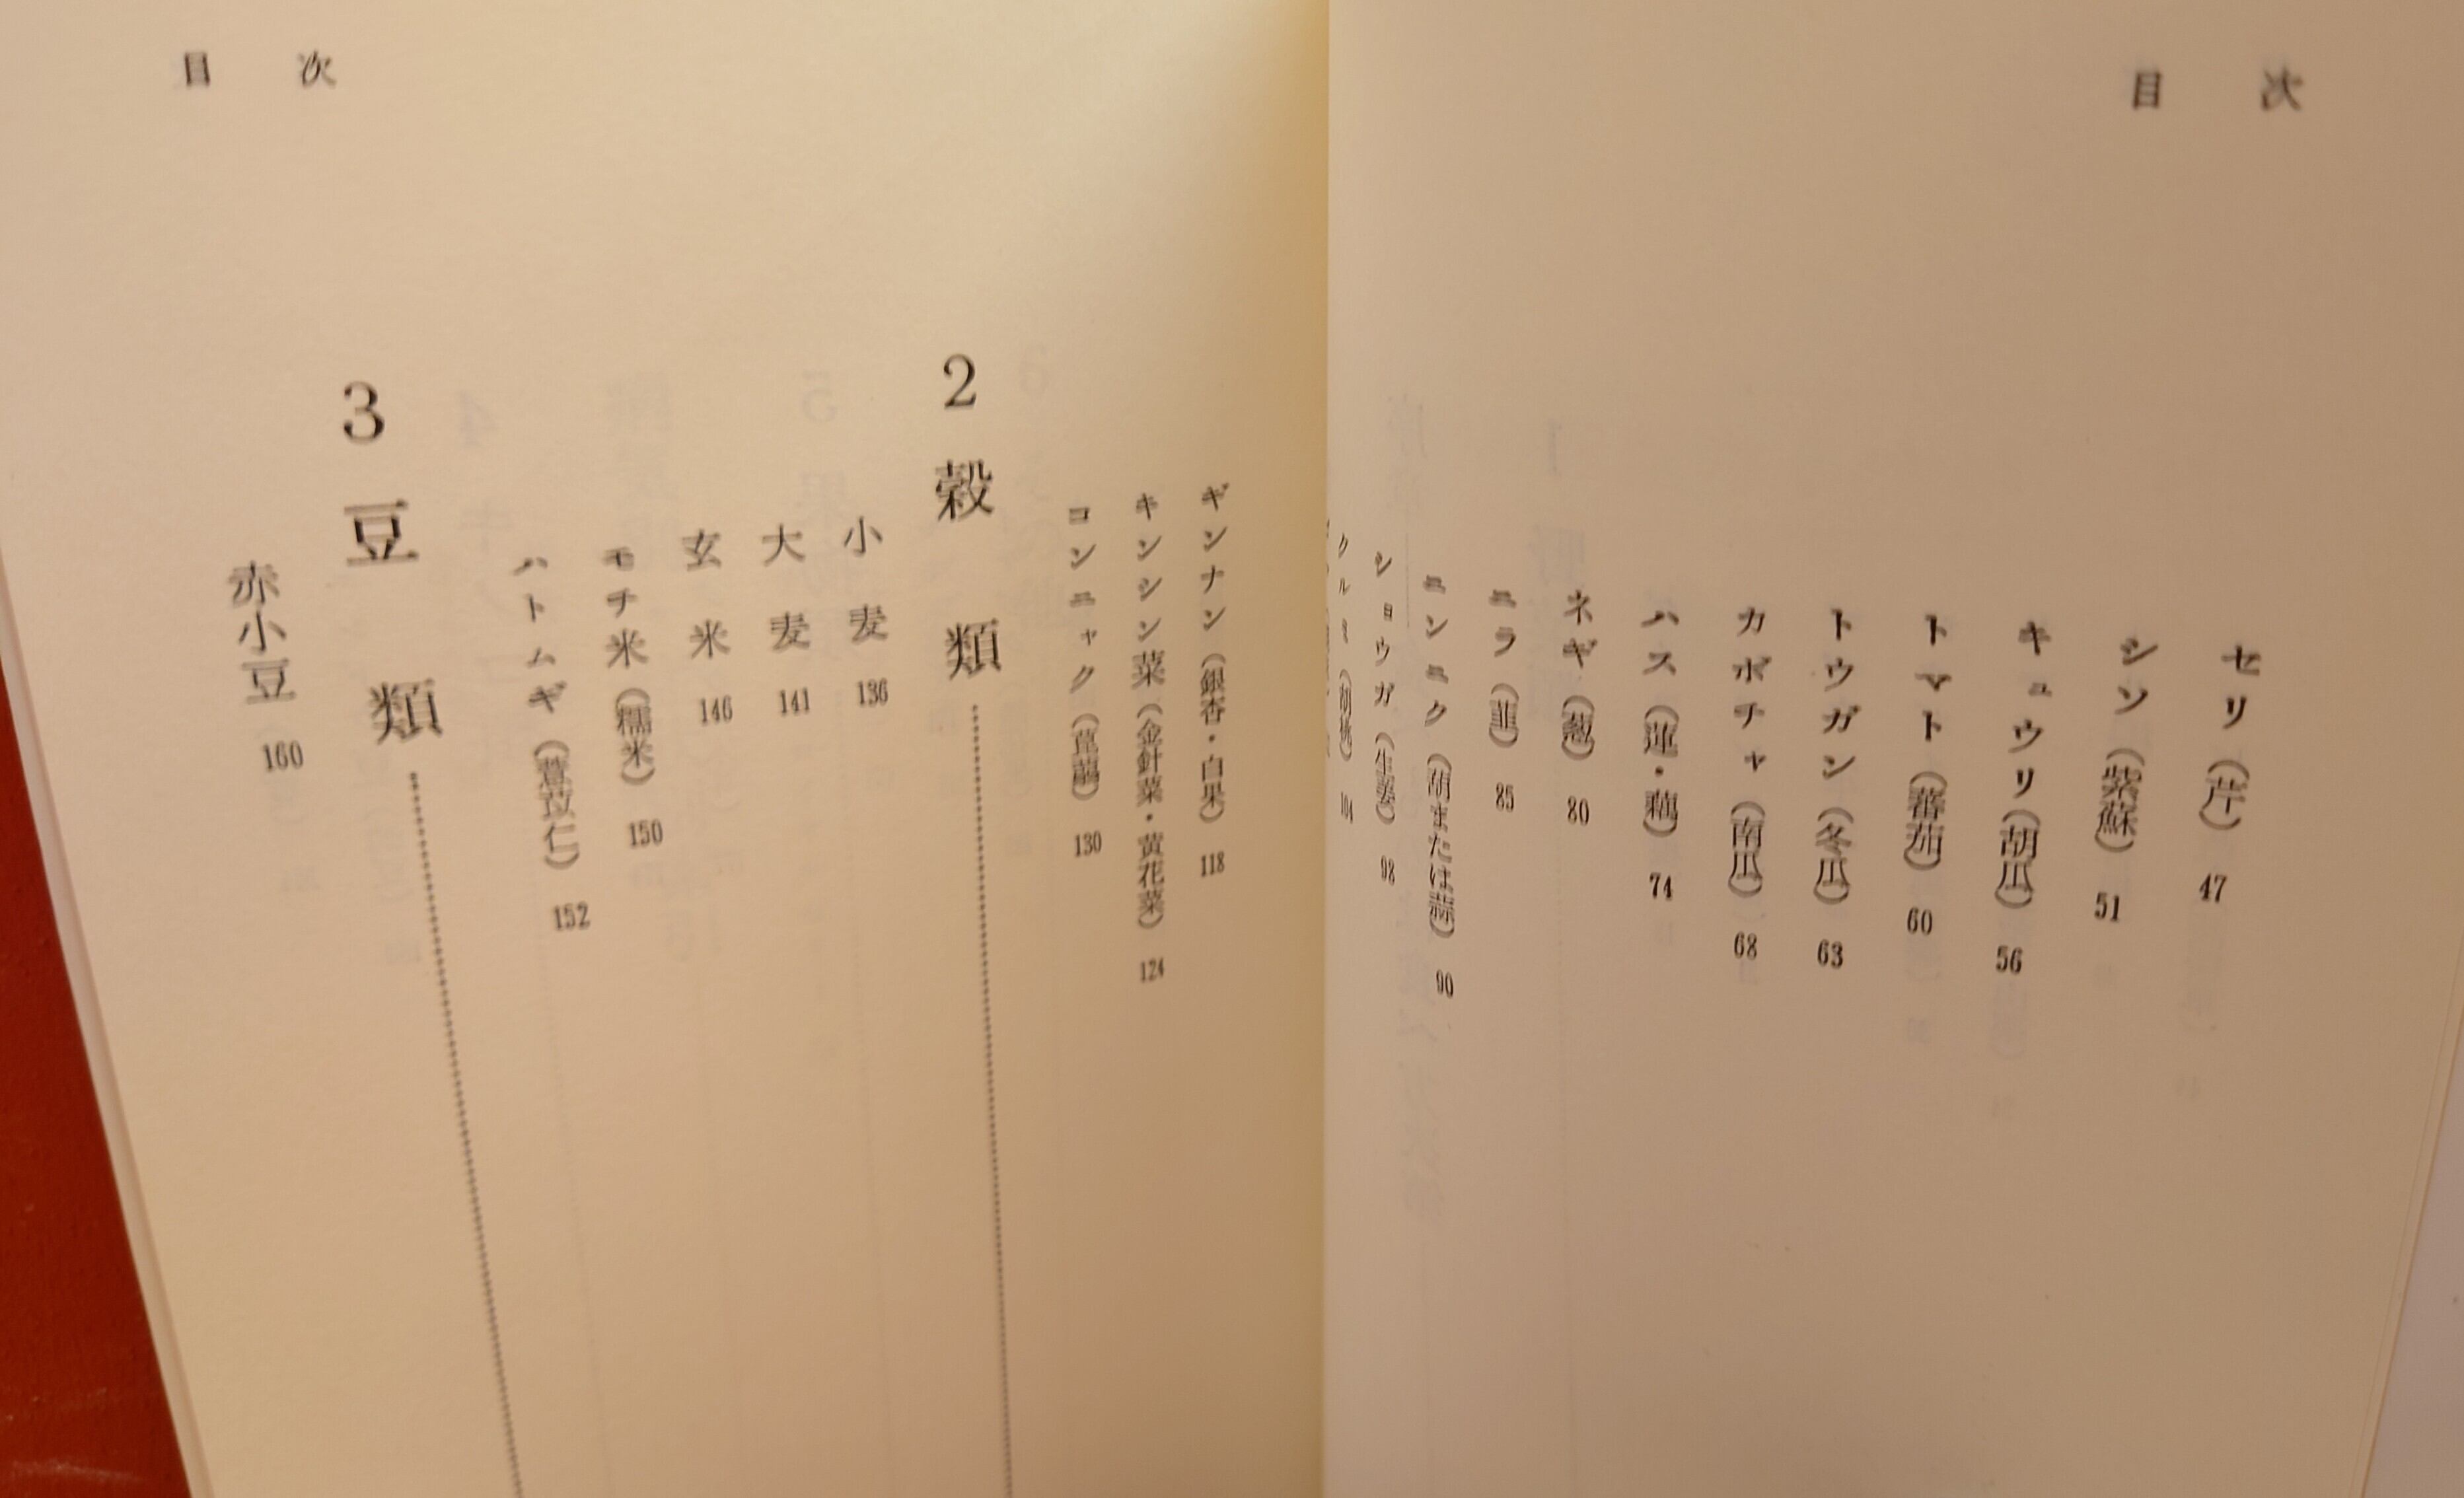 目次
セリ(芹) 47
シソ(紫蘇) 51
キュウリ(胡瓜) 56
トマト(蕃茄) 60
トウガン(冬瓜) 63
カボチャ(南瓜) 68
ハス(蓮・藕) 74
ネギ(葱) 80
ニラ(韮) 85
ニンニク(胡または蒜) 90
ショウガ(生姜) 98
クルミ(胡桃) 104
目次
ギンナン(銀杏・白果) 118
キンシン菜(金針菜・黄花菜) 124
コンニャク(菎蒻) 130
2 穀類
小麦 136
大麦 141
玄米 146
モチ米(糯米) 150
ハトムギ(薏苡仁) 152
3 豆類
赤小豆 160